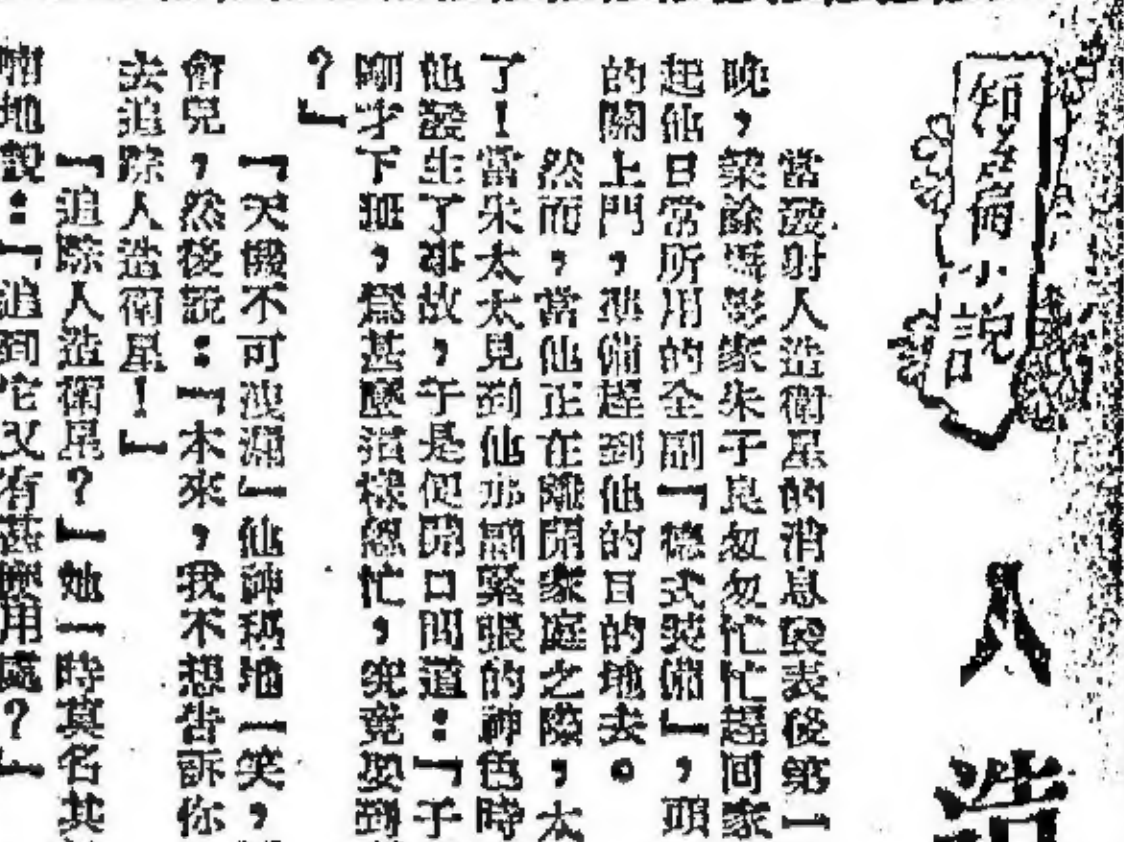 短篇小説
人造
當發射人造衛星的消息發表後第一
晚，業餘攝影家朱子良匆匆忙忙趕囘家
起他日常所用的全副「 式裝備」，頭
的關上門，準備趕到他的目的地去。
然而，當他正在離開家庭之際，太
了！當朱太太見到他那副緊張的神色時
他發生了事故，于是便開口問道：「子
剛才下班，爲甚麽這樣怱忙，究竟要到
？」
「天機不可洩漏」他神秘地一笑，
會兒，然後説：「本來，我不想告訴你
去追踪人造衛星！」
「追踪人造衛星？」她一時莫名其
喃地說：「追到它又有甚麽用處？」